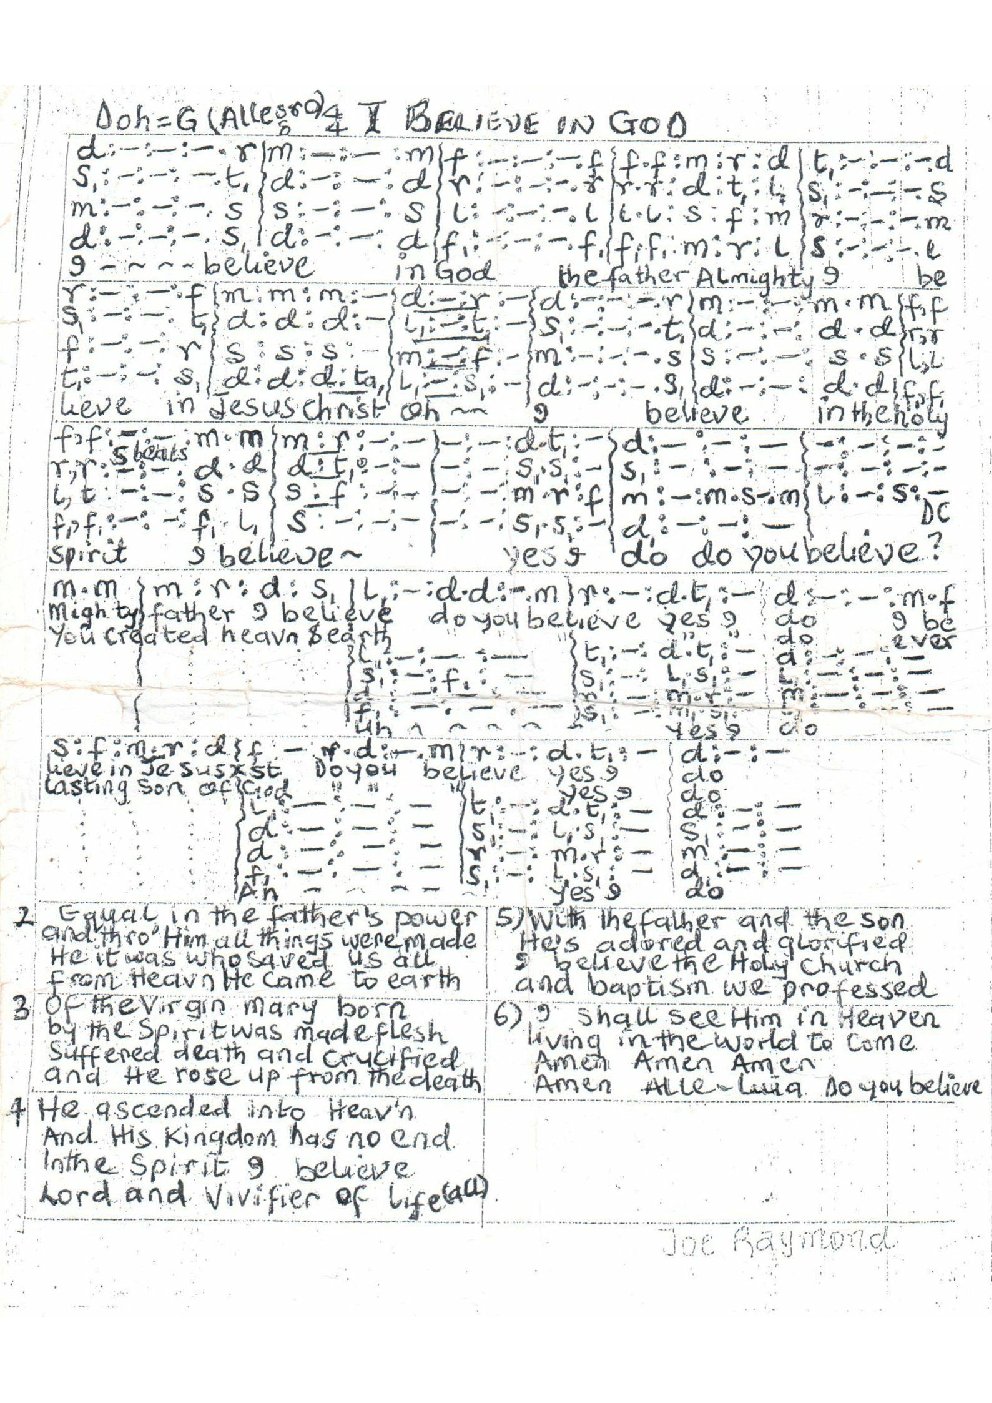 Doh=G (Allegro) 4/4 I BELIEVE IN GOD
d:-:-:-.r|m:-:-:m|f:-:-:-.f|f.f:m:r:d|t,:-:-:-.d
S,:-:-:-.t,|d:-:-:d|r:-:-:-.r|r.r:d:t,:l,|S,:-:-:-S
m:-:-:-.s|s:-:-:s|l:-:-:-.l|l.l:s:f:m|r:-:-:-.m
d:-:-:-.s,|d:-:-:d|f,:-:-:-.f,|f,.f,:m:r:l|s:-:-:-.l
I - ~ ~ - believe in God the father Almighty I be
r:-:-:-f|m:m:m:-|d:-:r:-|d:-:-:-r|m:-:-:m.m|f,f
S,:-:-:-t,|d:d:d:-|l,:-:t,:-|S,:-:-:-t,|d:-:-:d.d|r,r
f:-:-:r|s:s:s-|m:-:f:-|m:-:-:-.s|s:-:-:s.s|l,l
t,:-:-:s,|d:d:d:ta,|l,:-:s,:-|d:-:-:-.s,|d:-:-:d.d|f,f,
lieve in Jesus Christ oh ~~ I believe in the holy
f,f:-:-:m.m|m:r:-:-|-:-:d.t,:-|d:-:-:-|-:-:-:-
5 beats
r,r:-:-:d.d|d:t,:-:-|-:-:s,s,:-|s,:-:-:-|-:-:-:-
l,t:-:-:s.s|s:f:-:-|-:-:m.r:f|m:-:m.s-m|l:-:s:-
f,f,:-:-:f,.l,|s:-:-:-|-:-:s,.s,:-|d,:-:-:-
DC
Spirit I believe~ yes I do do do you believe?
m.m|m:r:d:s,|l,:-:d.d:-.m|r:-:d.t,:-|d:-:-:m.f
Mighty father I believe do you believe yes I do I be
You created heavn & earth " " " do ever
l,:-:-:-|t,:-:d.t,:-|d:-:-:-
s,:-:f,:-|s,:-:l,.s,:-|l:-:-:-
d:-:-:-|r:-:m.r:-|m:-:-:-
f,:-:-:-|s,:-:m,.s,:-|d:-:-:-
Uh ~ ~ ~ ~ ~ yes I do
s:f:m:r:d|f:-:r.d:-.m|r:-:d.t,:-|d:-:-
lieve in Jesus xst Do you believe yes I do
lasting son of God " " " yes I do
l,:-:-:-|t,:-:d.t,:-|d:-:-
d:-:-:-|s,:-:l,.s,:-|S,:-:-
d:-:-:-|r:-:m.r:-|m:-:-
f,:-:-:-|s,:-:l,.s,:-|d:-:-
Ah ~ ~ ~ ~ yes I do
2 Equal in the father's power
and thro' Him all things were made
He it was who saved us all
from Heavn He came to earth
3 Of the Virgin mary born
by the Spirit was made flesh
Suffered death and crucified
and He rose up from the death
4 He ascended into Heav'n
And His Kingdom has no end
In the Spirit I believe
Lord and Vivifier of Life (all)
5) With the father and the son
He's adored and glorified
I believe the Holy Church
and baptism we professed
6) I shall see Him in Heaven
living in the world to come
Amen Amen Amen
Amen Alle-luia Do you believe
Joe Raymond